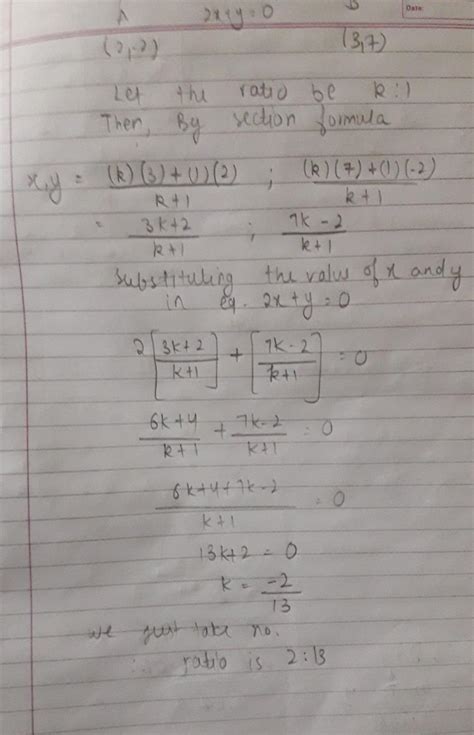 A 2x+y=0 B Date:
(2,-2) (3,7)
Let the ratio be k:1
Then, By section formula
x,y = (k)(3)+(1)(2) / k+1 ; (k)(7)+(1)(-2) / k+1
= 3k+2 / k+1 ; 7k-2 / k+1
Substituting the value of x and y
in eq. 2x+y=0
2[3k+2 / k+1] + [7k-2 / k+1] = 0
6k+4 / k+1 + 7k-2 / k+1 = 0
6k+4+7k-2 / k+1 = 0
13k+2 = 0
k = -2 / 13
we just take no.
∴ ratio is 2:13